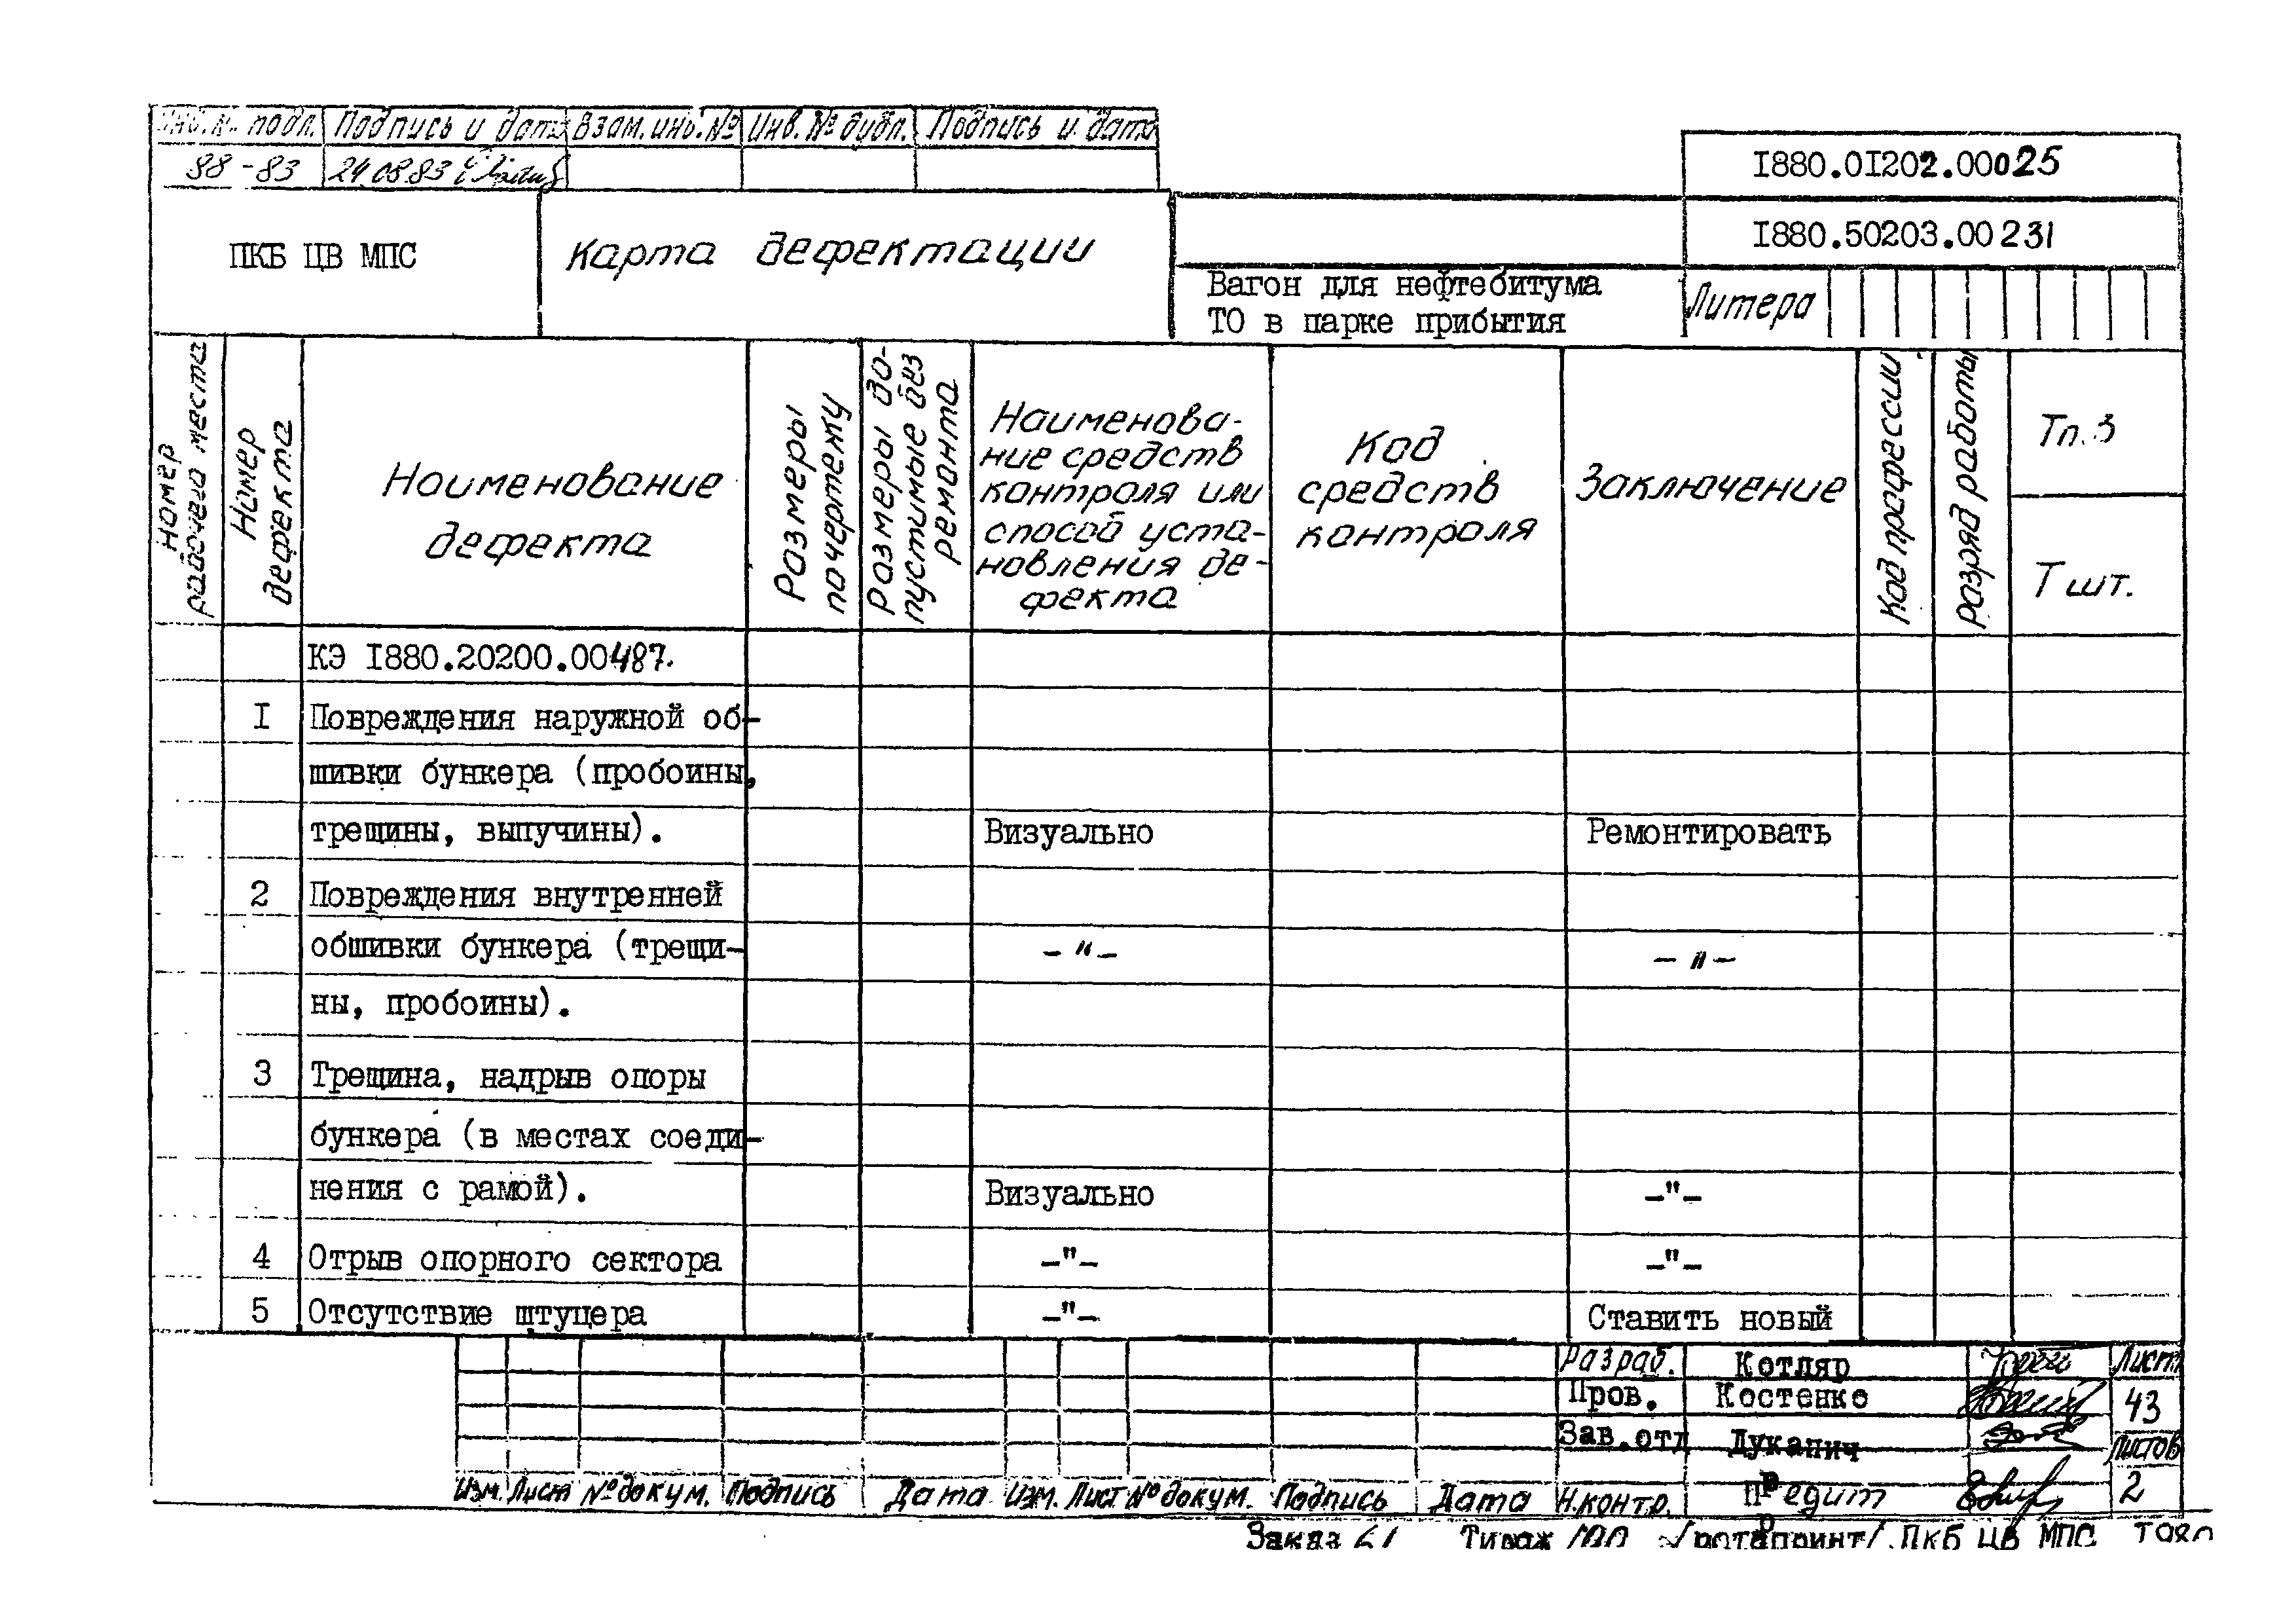 Инв.№ подл. Подпись и дата Взам.инв.№ Инв.№ дубл. Подпись и дата
88-83 24.08.83
I880.0I202.00025
I880.50203.00231
ПКБ ЦВ МПС
Карта дефектации
Вагон для нефтебитума
ТО в парке прибытия
Литера
Номер рабочего места
Номер дефекта
Наименование
дефекта
Размеры по чертежу
Размеры до-
пустимые без
ремонта
Наименова-
ние средств
контроля или
способ уста-
новления де-
фекта
Код
средств
контроля
Заключение
Код профессии
Разряд работы
Тп.з
Т шт.
КЭ I880.20200.00487.
I Повреждения наружной об-
шивки бункера (пробоины,
трещины, выпучины). Визуально Ремонтировать
2 Повреждения внутренней
обшивки бункера (трещи- -"- -"-
ны, пробоины).
3 Трещина, надрыв опоры
бункера (в местах соеди-
нения с рамой). Визуально -"-
4 Отрыв опорного сектора -"- -"-
5 Отсутствие штуцера -"- Ставить новый
Разраб. Котляр Лист
Пров. Костенко 43
Зав.отд Дукалич Листов
Изм. Лист №докум. Подпись Дата Изм. Лист №докум. Подпись Дата Н.контр. 2
Заказ Тираж /ротапринт/ ПКБ ЦВ МПС